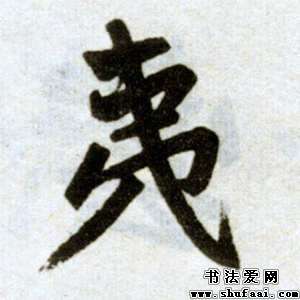 夷
书法爱网
www.shufaai.com